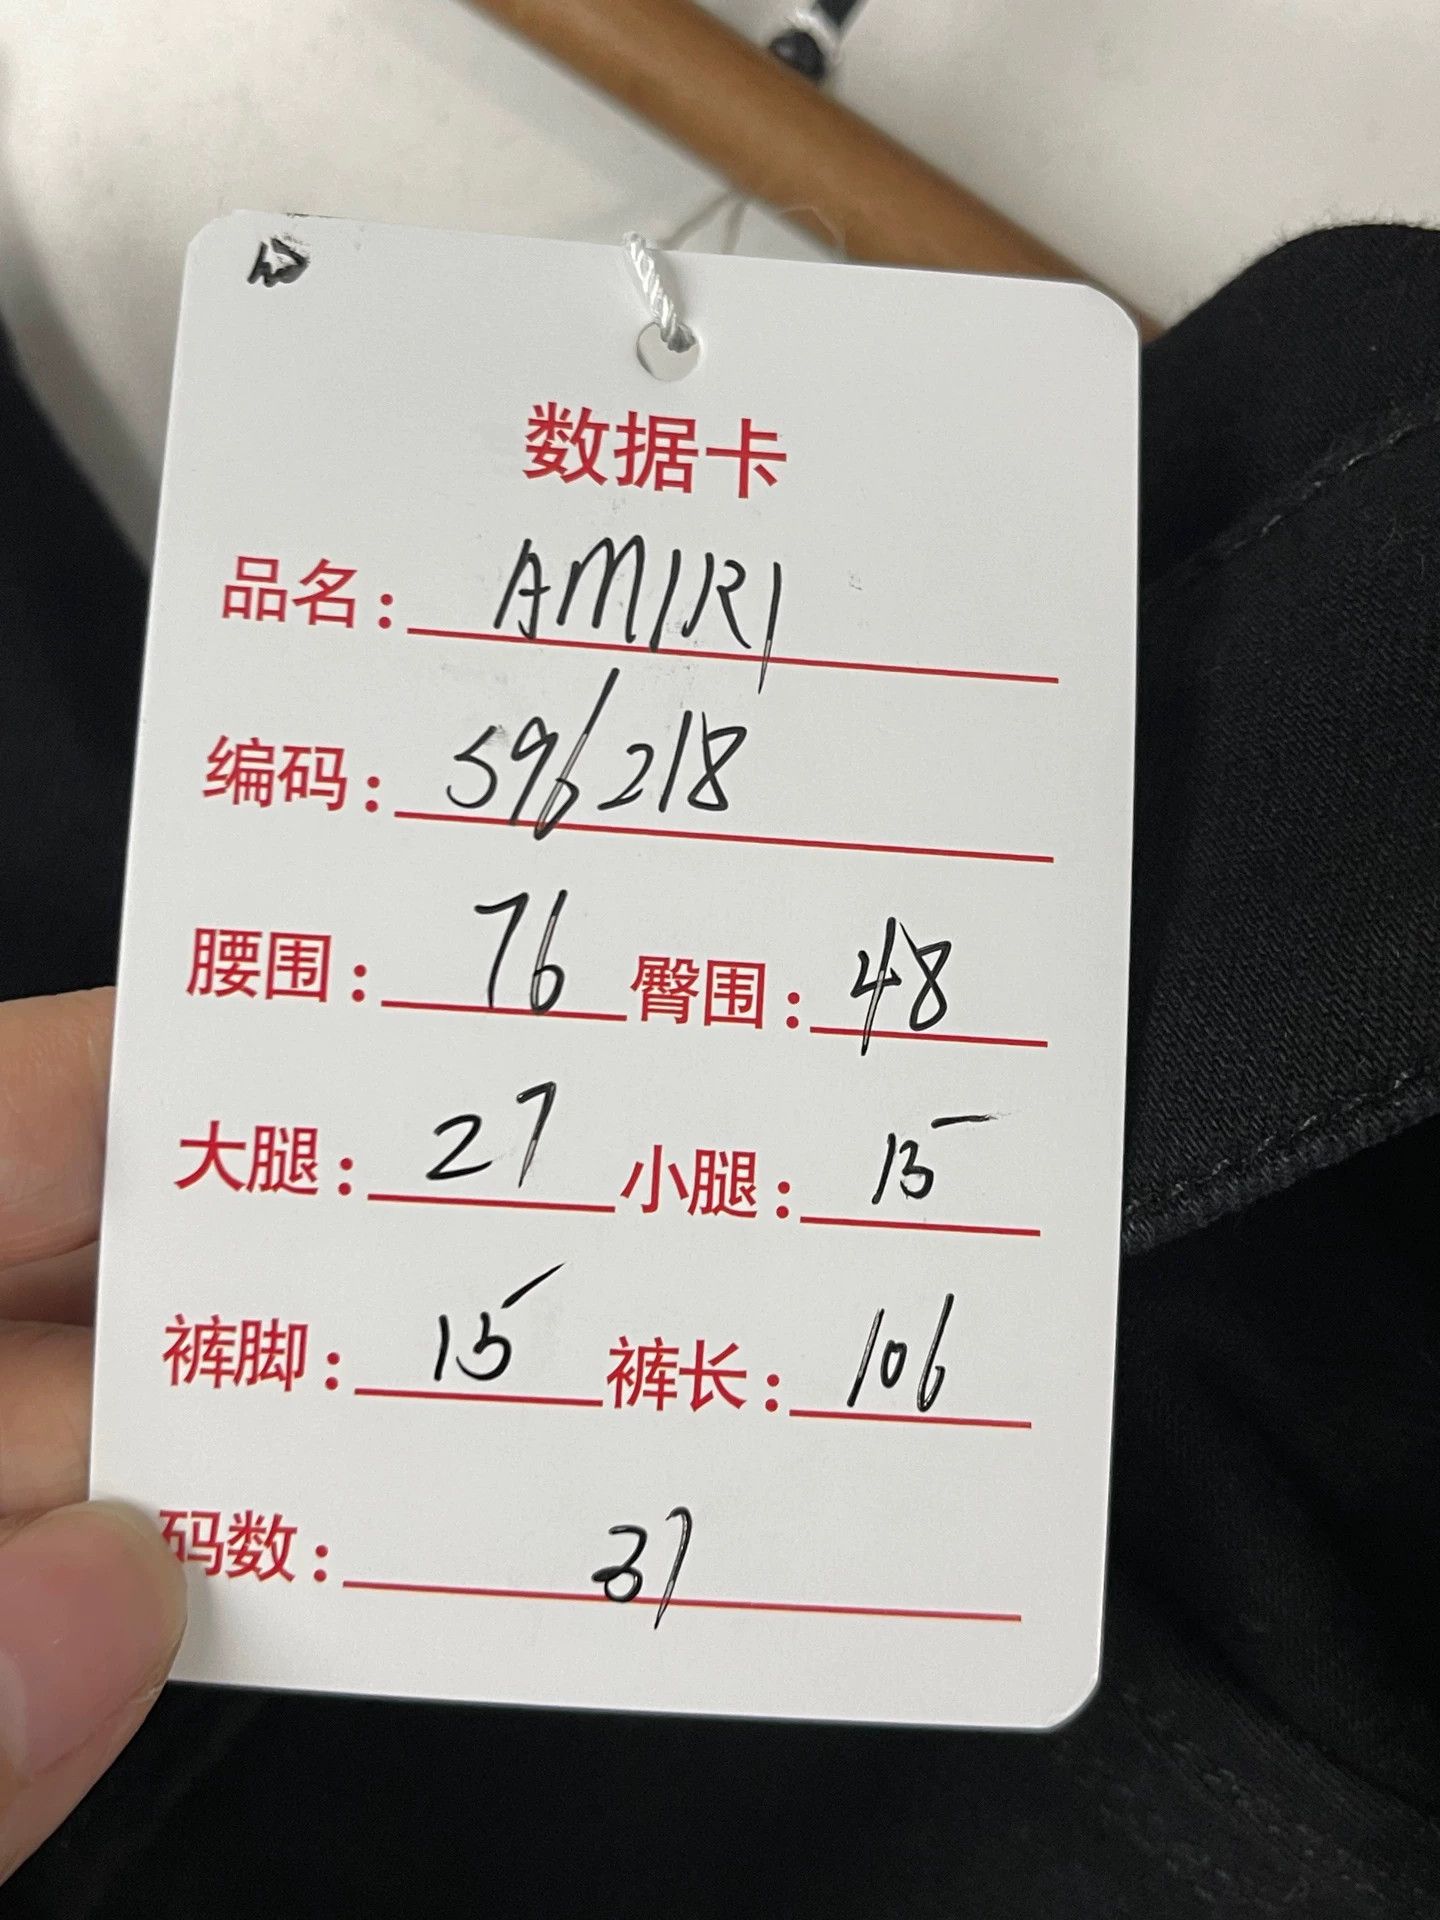 数据卡
品名: AMIRI
编码: 596218
腰围: 76 臀围: 48
大腿: 27 小腿: 15
裤脚: 15 裤长: 106
码数: 37